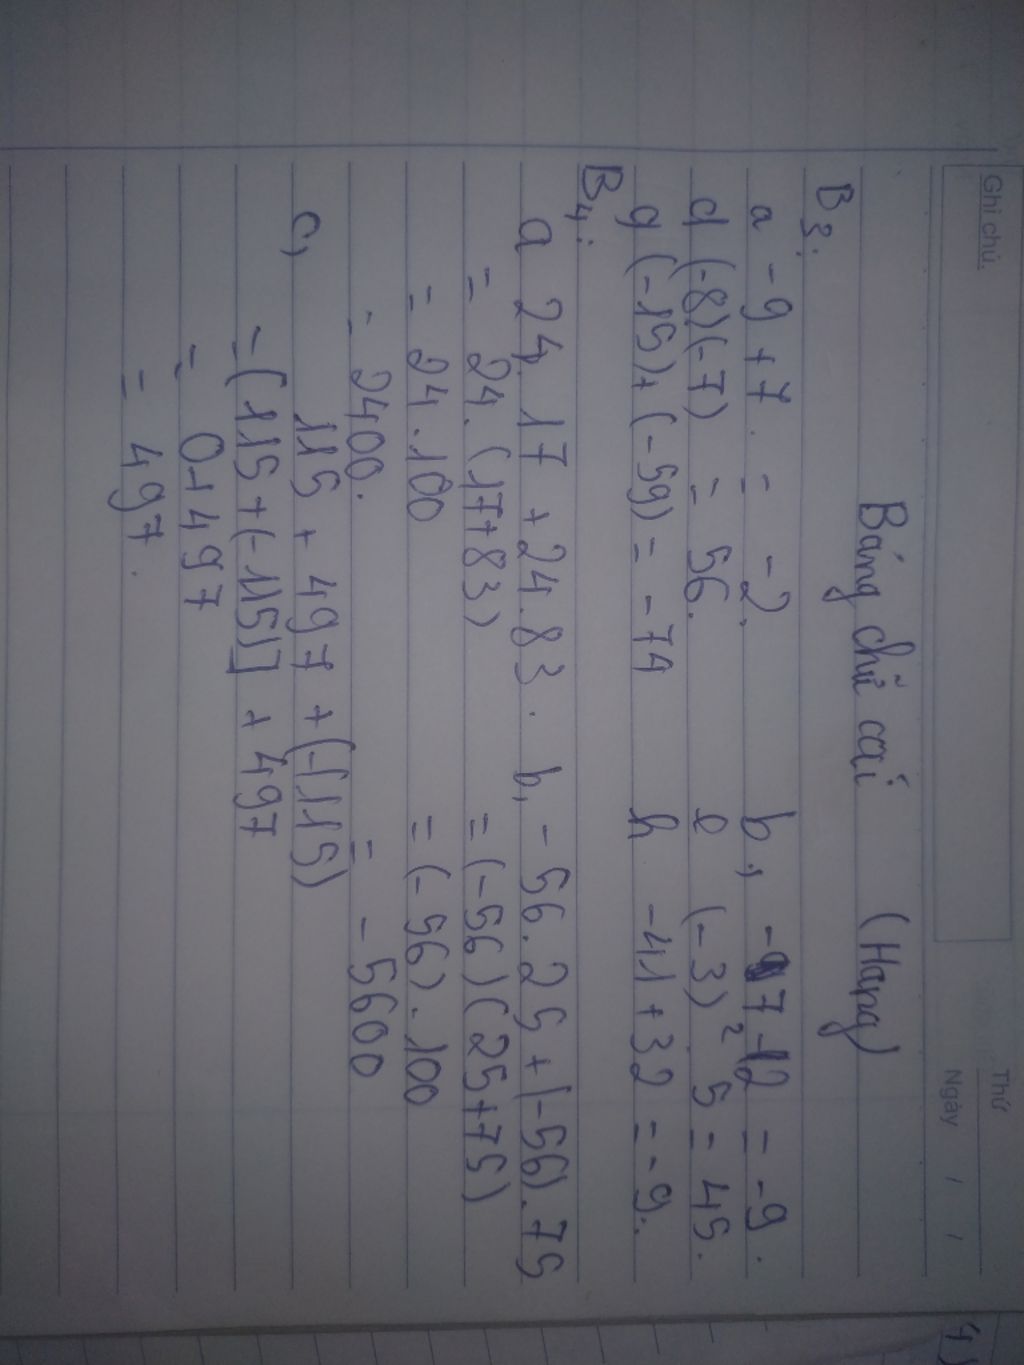 Ghi chú.
Thứ
Ngày / /
Bảng chữ cái (Hạng)
B3:
a -9 + 7 = -2. b, -7 - 2 = -9.
d (-8)(-7) = 56. e (-3)² 5 = 45.
g (-15) + (-59) = -74 h -41 + 32 = -9.
B4:
a 24. 17 + 24. 83. b, -56. 25 + (-56). 75
= 24. (17 + 83) = (-56) (25 + 75)
= 24. 100 = (-56). 100
= 2400. = -5600
c, 115 + 497 + (-115)
= (115 + (-115)] + 497
= 0 + 497
= 497.